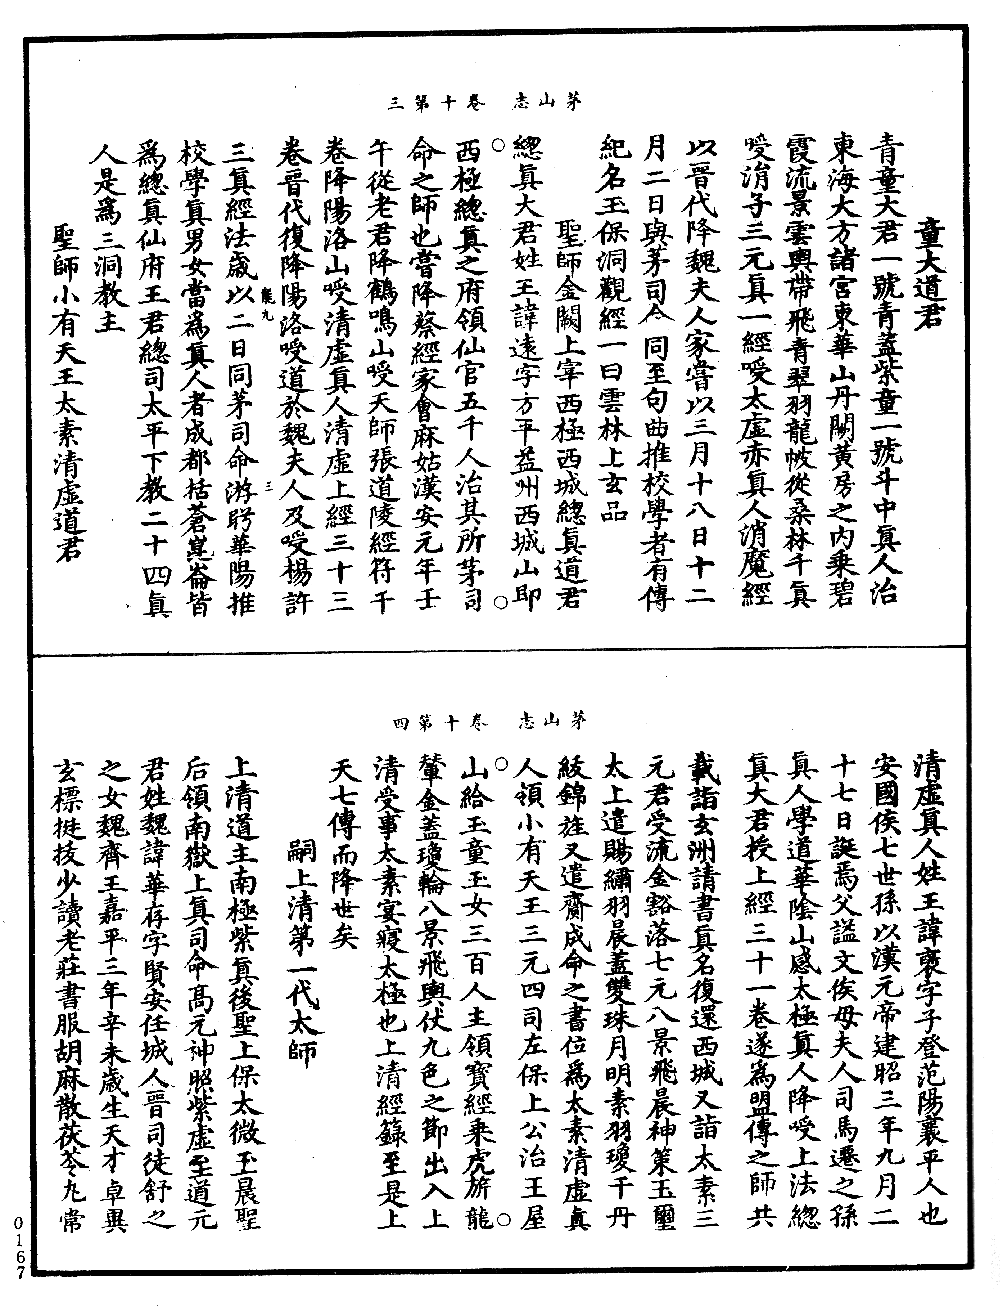 茅山志　卷十第三
童大道君
青童大君一號青蓋紫童一號斗中真人治
東海大方諸宮東華山丹闕黃房之內乘碧
霞流景雲輿帶飛青翠羽龍帔從桑林千真
受涓子三元真一經受太虛赤真人消魔經
以晉代降魏夫人家嘗以三月十八日十二
月二日與茅司命同至句曲推校學者有傳
紀名玉保洞觀經一曰雲林上玄品
聖師金闕上宰西極西城總真道君
總真大君姓王諱遠字方平益州西城山即
西極總真之府領仙官五千人治其所茅司
命之師也嘗降蔡經家會麻姑漢安元年壬
午從老君降鶴鳴山受天師張道陵經符千
卷降陽洛山受清虛真人清虛上經三十三
卷晉代復降陽洛受道於魏夫人及受楊許
三真經法歲以二日同茅司命游盻華陽推
校學真男女當為真人者成都括蒼崑崙皆
為總真仙府王君總司太平下教二十四真
人是為三洞教主
聖師小有天王太素清虛道君
茅山志　卷十第四
清虛真人姓王諱褒字子登范陽襄平人也
安國侯七世孫以漢元帝建昭三年九月二
十七日誕焉父謚文侯母夫人司馬遷之孫
真人學道華陰山感太極真人降受上法總
真大君授上經三十一卷遂為盟傳之師共
載詣玄洲請書真名復還西城又詣太素三
元君受流金豁落七元八景飛晨神策玉璽
太上遣賜繡羽晨蓋雙珠月明素羽瓊干丹
綾錦旌又遣齎成命之書位為太素清虛真
人領小有天王三元四司左保上公治王屋
山給玉童玉女三百人主領寶經乘虎旂龍
輦金蓋瓊輪八景飛輿伏九色之節出入上
清受事太素宴寢太極也上清經籙至是上
天七傳而降世矣
嗣上清第一代太師
上清道主南極紫真後聖上保太微玉晨聖
后領南嶽上真司命高元神照紫虛至道元
君姓魏諱華存字賢安任城人晉司徒舒之
之女魏齊王嘉平三年辛未歲生天才卓異
玄標挺拔少讀老莊書服胡麻散茯苓丸常
0167